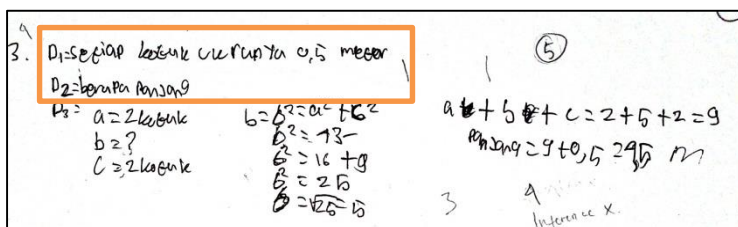 9
3. D1=setiap kotak ukuranya 0,5 meter
D2=berapa panjang
D3= a=2kotak
b=?
c=2kotak
b=b²=a²+c²
b²=
b²=16+9
b²=25
b=√25=5
5
a + b + c=2+5+2=9
panjang=9+0,5=9,5 m
3
9
Inference x.